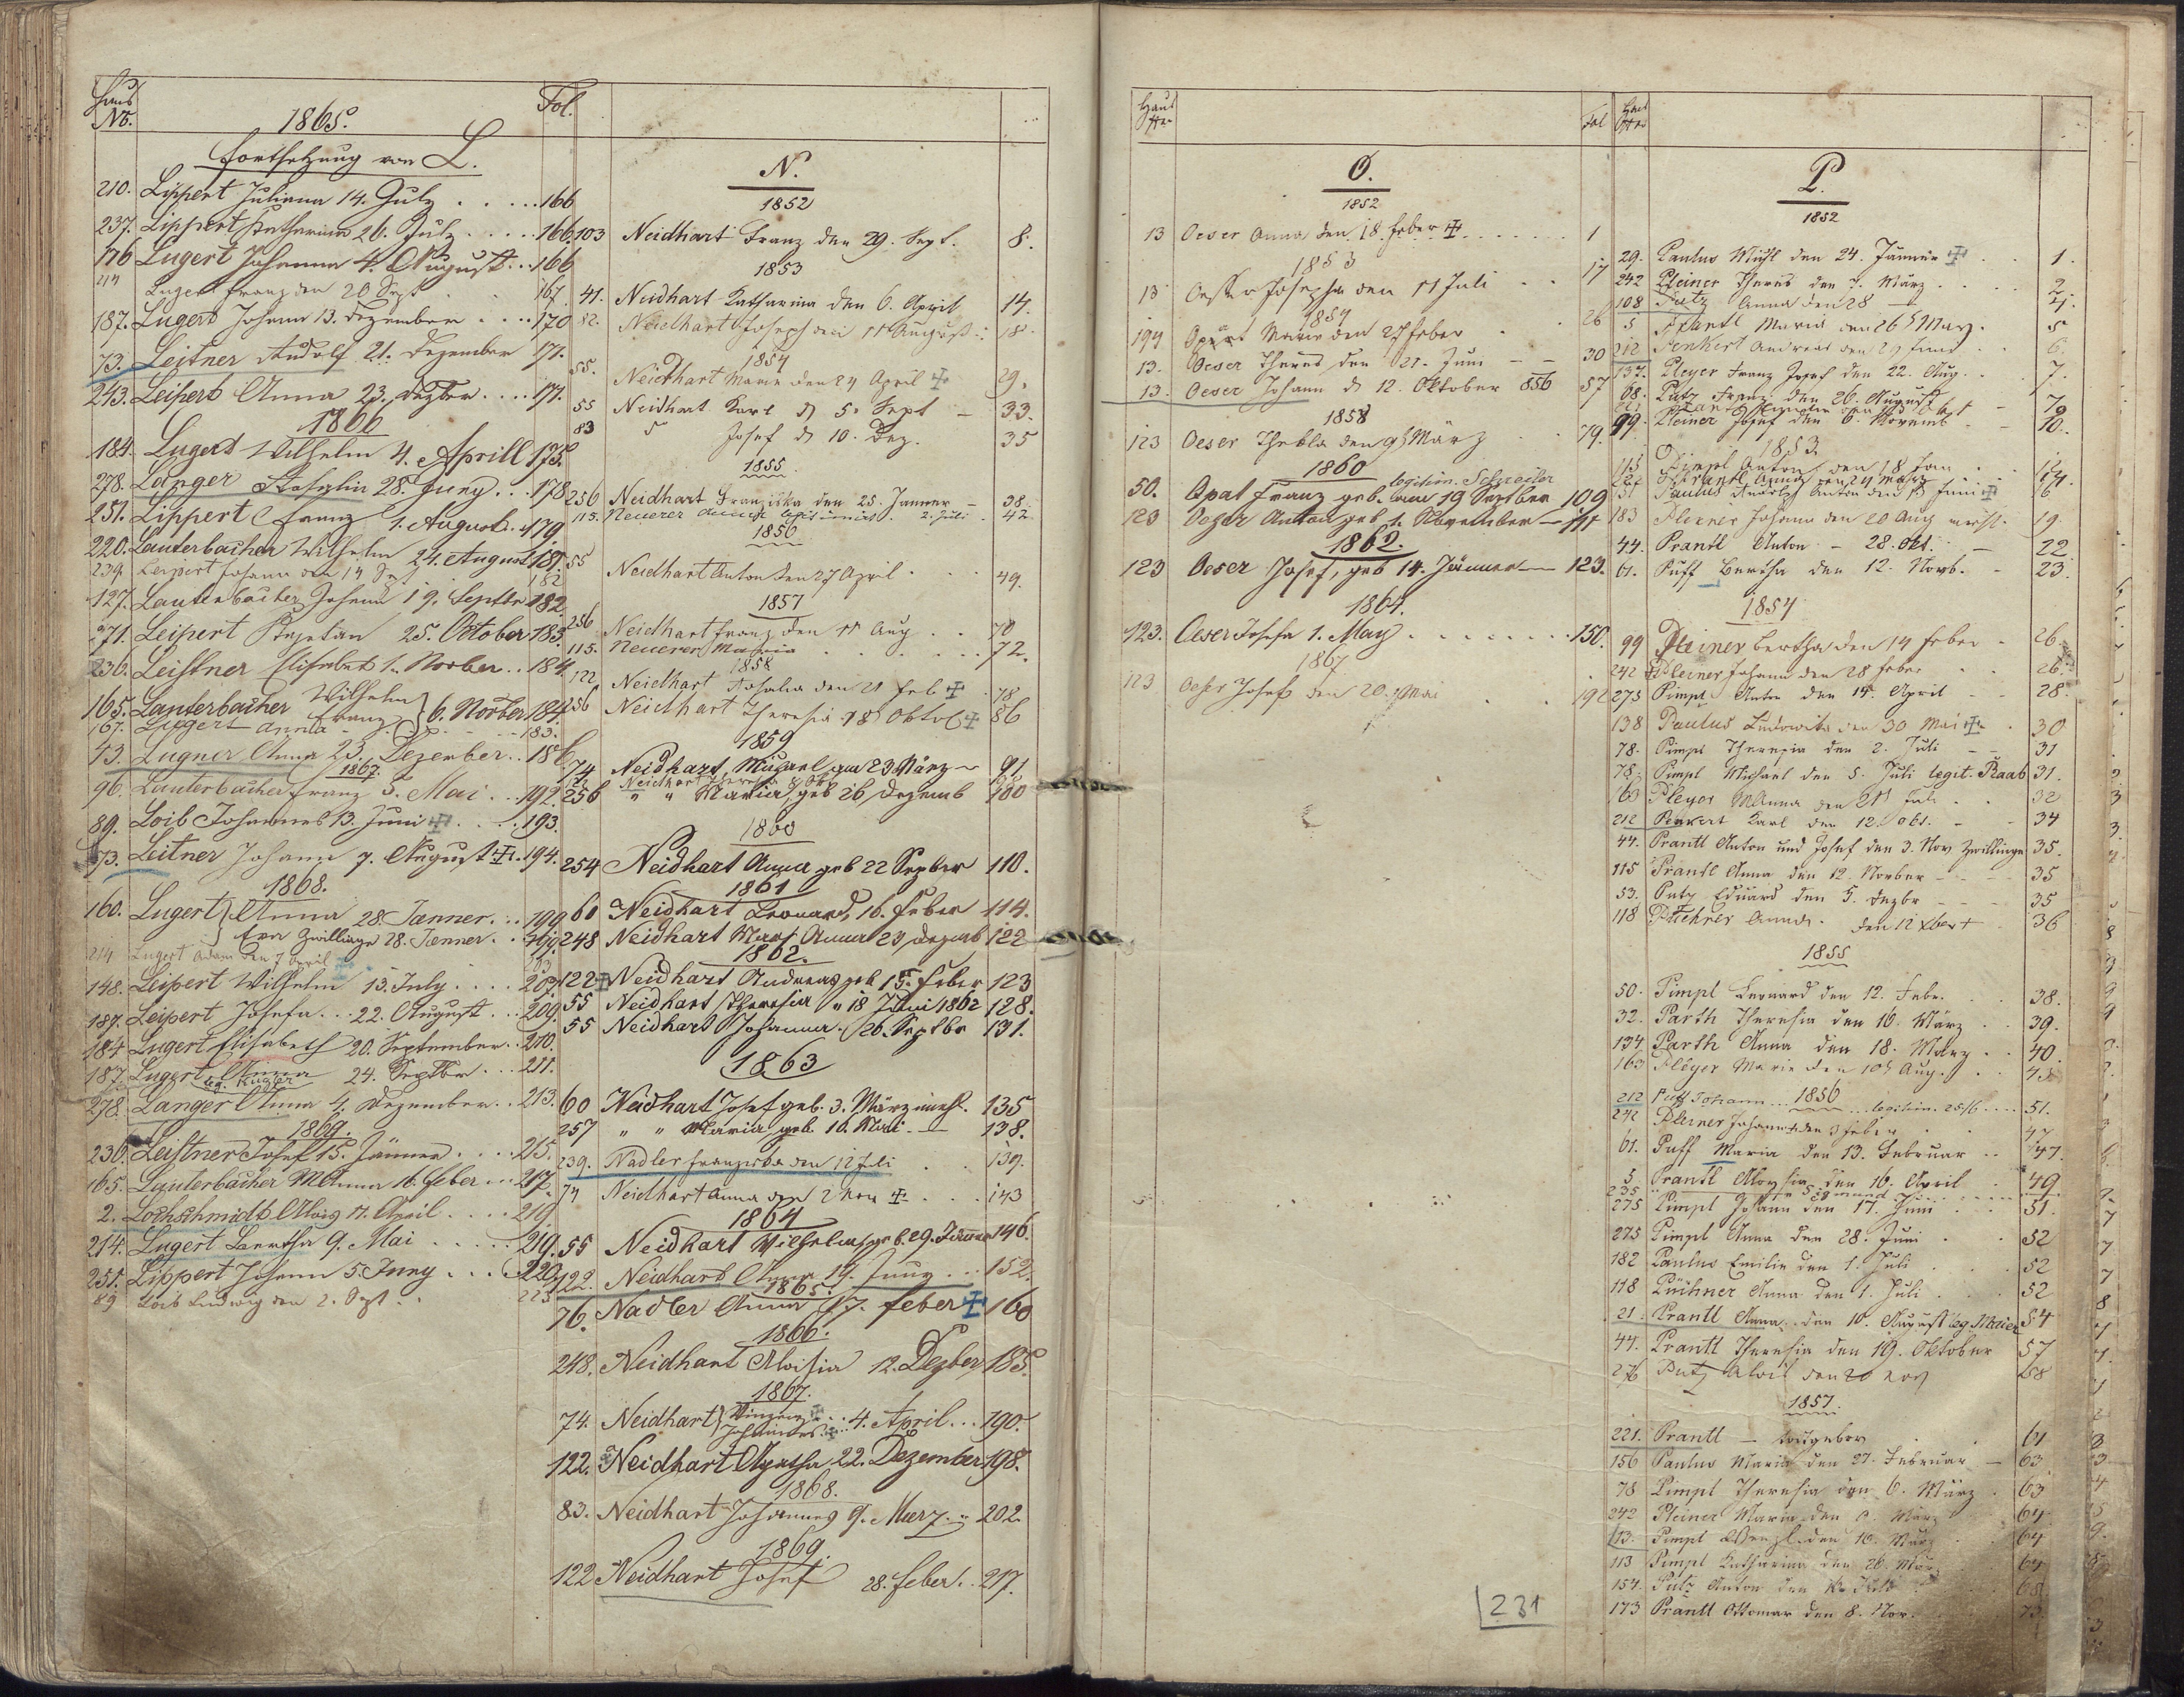 Haus
No.
1865.
Fol.
Fortsetzung von L.
210. Lippert Juliana 14. July . . . . . 166
237. Lippert Katharina 26. July . . . . 166
176 Lugert Johanna 4. August . . . 166
214 Lugert Franz den 20 Sept . . 167
187. Lugert Johann 13. Dezember . . . . 170
73. Leitner Rudolf 21. Dezember 171.
243. Leipert Anna 23. Dezber . . . . 171.
1866
184. Lugert Wilhelm 4. Aprill 175.
278. Langer 28. Juny . . . 178
251. Lippert Franz 1. August . 179
220. Lauterbacher Wilhelm 24. August 181.
239. Leipert Johann den 14 Sept 182
127. Lauterbacher Johann 19. Septbr 182
271. Leipert Kajetan 25. October 183.
236. Leistner Elisabet 1. Novber . . 184.
165. Lauterbacher Wilhelm Franz } 6. Novber 184.
167. Lippert Anna - - - 183.
43. Lugner Anna 23. Dezember . . 186
1867.
96. Lauterbacher Franz 5. Mai . . . 192.
89. Loib Johannes 13. Juni ✠ . . . 193.
73. Leitner Johann 7. August ✠ . 194.
1868.
160. Lugert } Anna 28. Jänner . . . 199
Eva Zwillinge 28. Jenner . . 199
214 Lugert Adam den 7 April
148. Leipert Wilhelm 13. July . . . . 207
187. Leipert Josefa . . . 22. August . . . 209.
184 Lugert Elisabeth 20. September . . 210.
187. Lugert Anna 24. Septbr . . . 211.
278. Langer Anna 4. Dezember . . 213.
1869.
236. Leistner Josef 15. Jänner . . . . 215.
165. Lauterbacher MAnna 16. Feber . . . 217.
2. Lochschmidt Alois 17. April . . . . 219
214. Lugert Bertha 9. Mai . . . . . 219.
251. Lippert Johann 5. Juny . . . . 220.
89 Loib Ludwig den 2. Sept . . 223
N.
1852
103 Neidhart Franz den 29. Sept. 8.
1853
41. Neidhart Katharina den 6. April 14.
82. Neidhart Joseph den 11 August . . 18.
1854
55. Neidhart Maria den 24 April ✠ 29.
55 Neidhart Karl d 5. Sept - 33.
83 " Josef d 10. Dez. 35
1855
256 Neidhart Franziska den 25. Jänner - 38.
115. Neuerer . 2. Juli . 42
1856
55 Neidhart Anton den 27 April . 49.
1857
256 Neidhart Franz den 11 Aug . . 70
115. Neuerer Maria . . . . . . . 72.
1858
122 Neidhart Rosalia den 21 Feb ✠ . 78
256 Neidhart Theresia 18 Oktob ✠ 86
1859
74 Neidhart Michael am 23 März - 91
256 " " Maria, geb 26 Dezemb 100
1860
254 Neidhart Anna geb 22 Septber 110.
1861
60 Neidhart Leonard, 16. Feber 114.
248 Neidhart Mar: Anna 23 Dezemb 122
1862.
122 ✠ Neidhart Andreas geb 15. Feber 123
55 Neidhart Theresia " 18 Juni 1862 128.
55 Neidhart Johanna . 26. Septbr 131.
1863
60 Neidhart Josef geb. 3. März unehl. 135
257 " " Maria geb. 16. Mai - 138.
239. Nadler Franziska den 12 Juli . . 139.
74 Neidhart Anna den 2 Nov ✠ . . . 143
1864
55 Neidhart Wilhelm geb. 29. Jänner 146.
122. Neidhart Anna 14. Juny . . . 152.
1865.
76. Nadler Anna 17. Feber ✠ 160
1866.
248. Neidhart Aloisia 12. Dezber 185.
1867.
74. Neidhart } Vinzenz ✠ . . . 4. April . . . 190.
Johannes ✠
122. Neidhart Agatha 22. Dezember 198.
1868.
83. Neidhart Johannes 9. Maerz . . 202.
1869.
122 Neidhart Josef 28. Feber . . 217.
Haus
Nro
Fol
O.
1852
13 Oeser Anna den 18. Feber ✠ . . . . . . . 1
1853
13 Oesser Josepha den 11 Juli . . 17
1854
194 Opat Maria den 27 Feber . 26
13. Oeser Theres den 21. Juni - - 30
13. Oeser Johann d 12. Oktober 856 57
1858
123 Oeser Thekla den 9 März . . 79.
1860 legitim. Schneider
50. Opat Franz geb. am 19 Septber 109
123 Oeser Anton geb 1. November - 111
1862.
123 Oeser Josef, geb 14. Jänner - 123.
1864.
123. Oeser Josefa 1. May . . . . . . . . 150.
1867
123 Oeser Josef den 20. Mai . . 192
231
Haus
Nro
P.
1852
29. Paulus den 24. Jänner ✠ . . 1.
242 Pleiner Theres den 7. März . . . . 2
108 Putz Anna den 28 - 4.
5 Prantl Maria den 26 März . 5
212 Penkert Andreas den 29 Juni . . 6.
137. Pleyer Franz Josef den 22. Aug. . . 7.
68. Putz Franz den 26. August - 7
99. Pleiner Josef den 6. Novemb - - 10.
1853
115 Pimpl Anton den 18 Jan . .
Prantl Anna den 24 März 14.
51 Paulus Anton den 13 Juni ✠ 16
183 Pleiner Johann den 20 Aug unehl. 19.
44. Prantl Anton - 28. Okt. - 22
61. Puff Bertha den 12. Novb. - 23.
1854
99 Pleiner Bertha den 14 Feber - 26
242 ✠ Pleiner Johann den 28 Feber . . 26.
275 Pimpl Anton den 14. April - - 28.
138 Paulus Ludowika den 30 Mai ✠ . 30
78. Pimpl Theresia den 2. Juli - - 31
78. Pimpl Michael den 5. Juli legit. Raab 31.
163 Pleyer MAnna den 21 Juli . . 32
212 Penkert Karl den 12. Okt. - - 34
44. Prantl Anton und Josef den 3. Nov Zwillinge 35.
115 Prantl Anna den 12. Novber - - - 35
53. Putz Eduard den 5. Dezbr - - - 35
118 Püchner Anna . den 12 Xber + 36
1855
50. Pimpl Leonard den 12. Febr. . 38.
32. Parth Theresia den 16. März . . 39.
134 Parth Anna den 18. März . . 40.
163 Pleyer Marie den 10 Aug. . . 45
1856
212 Puff Johann . . . legitim. 25/6 . . . . 51.
242 Pleiner Johann den 3 Feber . 47
61. Puff Maria den 13. Februar . . 47.
5 Prantl Aloysia den 16. April . 49
275 Pimpl Johann den 17. Juni . . 51.
275 Pimpl Anna den 28. Juni . . 52
182 Paulus Emilie den 1. Juli . 52
118 Püchner Anna den 1. Juli . . 52
21. Prantl Anna . den 10. August leg Maier 54
44. Prantl Theresia den 19. Oktober 57
276 Putz Alois den 20 Nov 58
1857.
221. Prantl - todtgebor . 61
156 Paulus Maria den 27. Februar - 63
78 Pimpl Theresia den 6. März . 63
242 Pleiner Maria den 6. März . 64
113. Pimpl Wenzl. den 16. März . 64
113 Pimpl Katharina den 26. März . 64
154. Putz Anton den 68
173 Prantl Ottomar den 8. Nov. 73